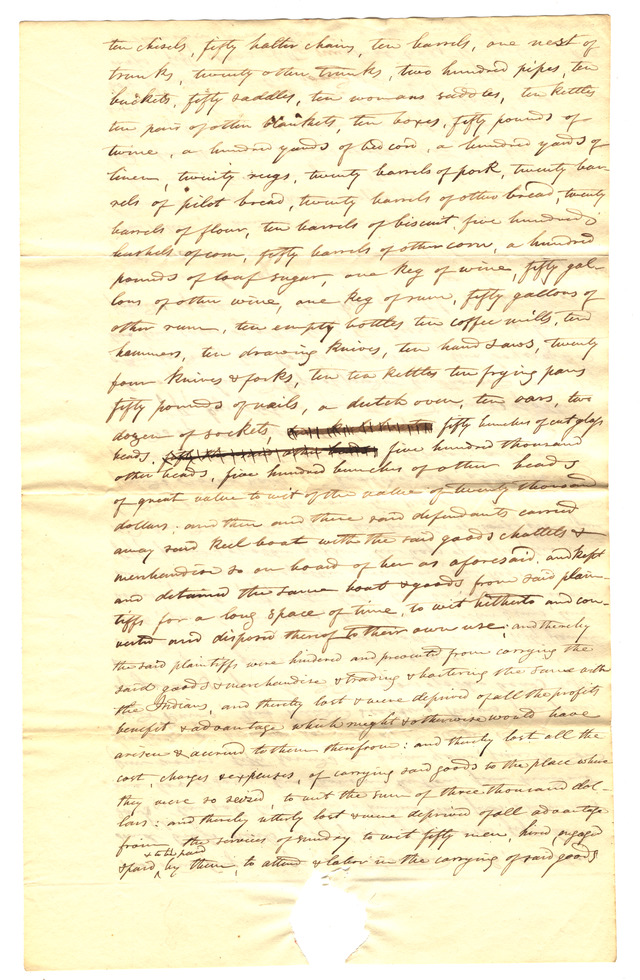 ten chisels, fifty halter chains, ten barrels, one nest of
trunks, twenty other trunks, two hundred pipes, ten
buckets, fifty saddles, ten womans saddles, ten kettles
ten pair of other blankets, ten boxes, fifty pounds of
twine, a hundred yards of bed cord, a hundred yards of
linen, twenty rugs, twenty barrels of pork, twenty bar-
rels of pilot bread, twenty barrels of other bread, twenty
barrels of flour, ten barrels of biscuit, five hundred
bushels of corn, fifty barrels of other corn, a hundred
pounds of loaf sugar, one keg of wine, fifty gal-
lons of other wine, one keg of rum, fifty gallons of
other rum, ten empty bottles ten coffee mills, ten
hammers, ten drawing knives, ten hand saws, twenty
four knives & forks, ten tea kettles ten frying pans
fifty pounds of nails, a dutch oven, ten oars, two
dozen of sockets, fifty bunches of cut glass
beads, five hundred thousand
other beads, five hundred bunches of other beads
of great value to wit of the value of twenty thousand
dollars: and then and there said defendants carried
away said keel boat with the said goods chattels &
merchandise so on board of her as aforesaid, and kept
and detained the same boat & goods from said plain-
tiffs for a long space of time, to wit hitherto and con-
verted and disposed thereof to their own use; and thereby
the said plaintiffs were hindered and prevented from carrying the
said goods & merchandise & trading & bartering the same with
the Indians, and thereby lost & were deprived of all the profits
benefit & advantage which might & otherwise would have
arisen & accrued to them therefrom: and thereby lost all the
cost, charges & expenses, of carrying said goods to the place where
they were so seized, to wit the sum of three thousand dol-
lars: and thereby utterly lost & were deprived of all advantage
from the services of sundry to wit fifty men, hired, engaged
& to be paid
& paid by them, to attend & labor in the carrying of said goods